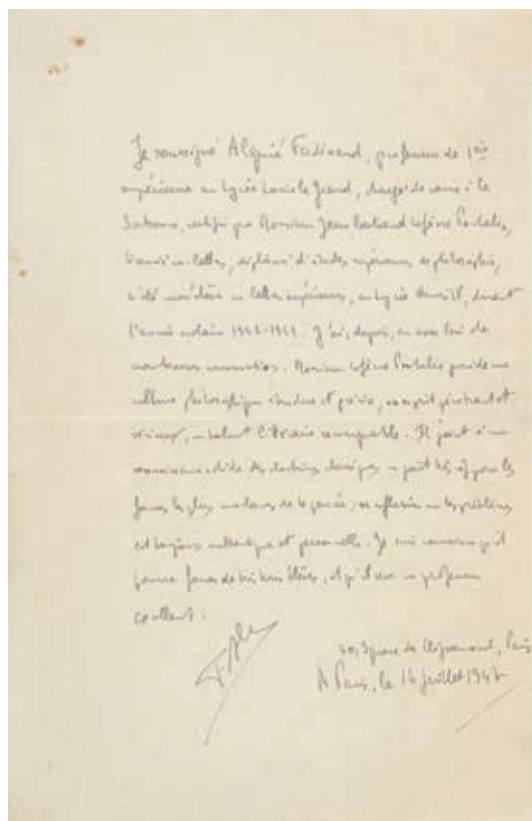 Je soussigné Alquié Ferdinand, professeur de 1ère
supérieure au Lycée Louis le Grand, chargé de cours à la
Sorbonne, certifie que Monsieur Jean Bertrand Lefèvre Pontalis,
licencié ès-lettres, diplômé d'études supérieures de philosophie,
a été mon élève en lettres supérieures, au Lycée Henri IV, durant
l'année scolaire 1941-1942. J'ai, depuis, eu avec lui de
nombreuses conversations. Monsieur Lefèvre Pontalis possède une
culture philosophique étendue et précise, un esprit pénétrant et
vigoureux, un talent littéraire remarquable. Il joint à une
connaissance solide des doctrines classiques un goût très vif pour les
formes les plus modernes de la pensée, sa réflexion sur les problèmes
est toujours authentique et personnelle. Je suis convaincu qu'il
pourra former de très bons élèves, et qu'il sera un professeur
excellent.
F. Alq
Square de Clignancourt, Paris
A Paris, le 16 juillet 194